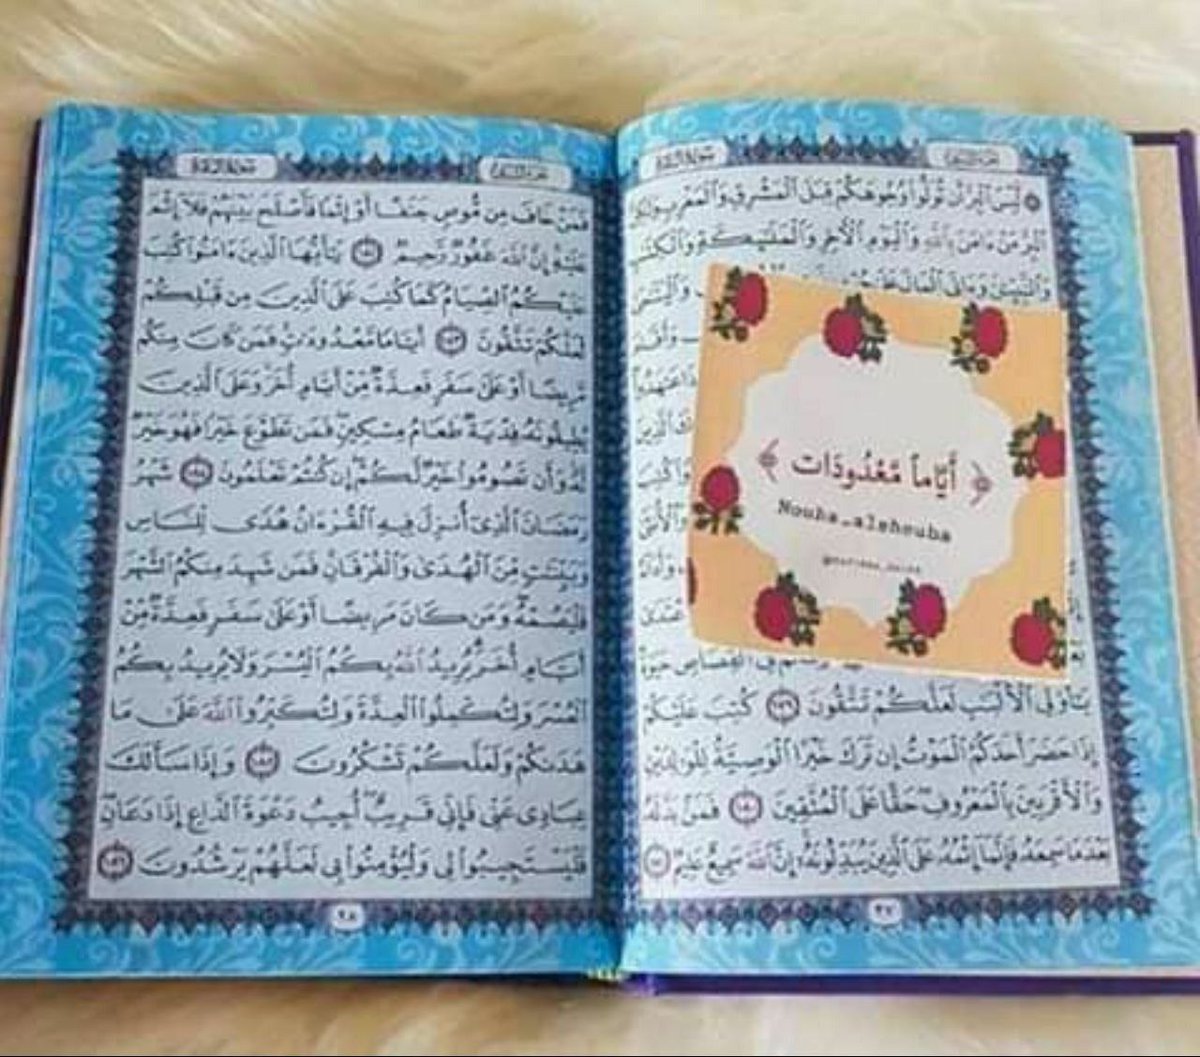 الجزء الثاني
سورة البقرة
لَيْسَ الْبِرَّ أَنْ تُوَلُّوا وُجُوهَكُمْ قِبَلَ الْمَشْرِقِ وَالْمَغْرِبِ وَلَٰكِنَّ
الْبِرَّ مَنْ ءَامَنَ بِاللَّهِ وَالْيَوْمِ الْأَخِرِ وَالْمَلَٰٓئِكَةِ وَالْكِتَٰبِ
وَالنَّبِيِّۦنَ وَءَاتَى الْمَالَ عَلَىٰ
﴿ أَيَّاماً مَّعْدُودَات ﴾
Nouha_alshouba
فِي الْقِصَاصِ حَيَوٰةٌ
يَٰٓأُولِي الْأَلْبَٰبِ لَعَلَّكُمْ تَتَّقُونَ ١٧٩ كُتِبَ عَلَيْكُمْ
إِذَا حَضَرَ أَحَدَكُمُ الْمَوْتُ إِن تَرَكَ خَيْرًا الْوَصِيَّةُ لِلْوَٰلِدَيْنِ
وَالْأَقْرَبِينَ بِالْمَعْرُوفِ حَقًّا عَلَى الْمُتَّقِينَ ١٨٠ فَمَنۢ بَدَّلَهُۥ
بَعْدَمَا سَمِعَهُۥ فَإِنَّمَآ إِثْمُهُۥ عَلَى الَّذِينَ يُبَدِّلُونَهُۥٓ إِنَّ اللَّهَ سَمِيعٌ عَلِيمٌ ١٨١
٢٧
الجزء الثاني
سورة البقرة
فَمَنْ خَافَ مِن مُّوصٍ جَنَفًا أَوْ إِثْمًا فَأَصْلَحَ بَيْنَهُمْ فَلَآ إِثْمَ
عَلَيْهِ إِنَّ اللَّهَ غَفُورٌ رَّحِيمٌ ١٨٢ يَٰٓأَيُّهَا الَّذِينَ ءَامَنُوا كُتِبَ
عَلَيْكُمُ الصِّيَامُ كَمَا كُتِبَ عَلَى الَّذِينَ مِن قَبْلِكُمْ
لَعَلَّكُمْ تَتَّقُونَ ١٨٣ أَيَّامًا مَّعْدُودَٰتٍ فَمَن كَانَ مِنكُم
مَّرِيضًا أَوْ عَلَىٰ سَفَرٍ فَعِدَّةٌ مِّنْ أَيَّامٍ أُخَرَ وَعَلَى الَّذِينَ
يُطِيقُونَهُۥ فِدْيَةٌ طَعَامُ مِسْكِينٍ فَمَن تَطَوَّعَ خَيْرًا فَهُوَ خَيْرٌ
لَّهُۥ وَأَن تَصُومُوا خَيْرٌ لَّكُمْ إِن كُنتُمْ تَعْلَمُونَ ١٨٤ شَهْرُ
رَمَضَانَ الَّذِىٓ أُنزِلَ فِيهِ الْقُرْءَانُ هُدًى لِّلنَّاسِ
وَبَيِّنَٰتٍ مِّنَ الْهُدَىٰ وَالْفُرْقَانِ فَمَن شَهِدَ مِنكُمُ الشَّهْرَ
فَلْيَصُمْهُ وَمَن كَانَ مَرِيضًا أَوْ عَلَىٰ سَفَرٍ فَعِدَّةٌ مِّنْ
أَيَّامٍ أُخَرَ يُرِيدُ اللَّهُ بِكُمُ الْيُسْرَ وَلَا يُرِيدُ بِكُمُ
الْعُسْرَ وَلِتُكْمِلُوا الْعِدَّةَ وَلِتُكَبِّرُوا اللَّهَ عَلَىٰ مَا
هَدَىٰكُمْ وَلَعَلَّكُمْ تَشْكُرُونَ ١٨٥ وَإِذَا سَأَلَكَ
عِبَادِى عَنِّى فَإِنِّى قَرِيبٌ أُجِيبُ دَعْوَةَ الدَّاعِ إِذَا دَعَانِ
فَلْيَسْتَجِيبُوا لِى وَلْيُؤْمِنُوا بِى لَعَلَّهُمْ يَرْشُدُونَ ١٨٦
٢٨